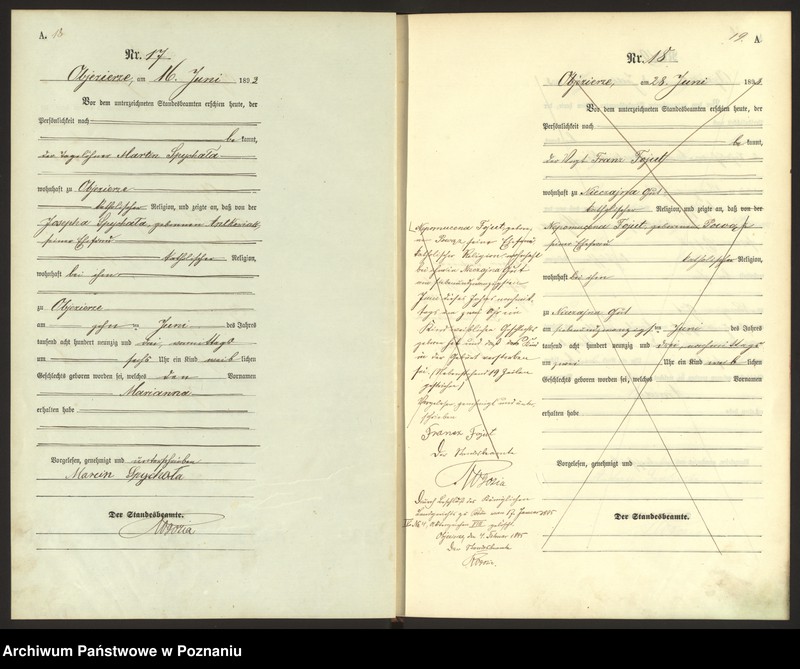 A. 18
Nr. 17
Objezierze, am 16. Juni 1892
Vor dem unterzeichneten Standesbeamten erschien heute, der
Persönlichkeit nach
be kannt,
der Tagelöhner Martin Spychała
wohnhaft zu Objezierze
katholischer Religion, und zeigte an, daß von der
Josepha Spychała, geborenen
seine Ehefrau
katholischer Religion,
wohnhaft bei ihm
zu Objezierze
am zehn ten Juni des Jahres
tausend acht hundert neunzig und zwei, vormittags
um sechs Uhr ein Kind weib lichen
Geschlechts geboren worden sei, welches den Vornamen
Marianna
erhalten habe
Vorgelesen, genehmigt und unterschrieben
Marcin Spychała
Der Standesbeamte.
19. A
Nr. 18
Objezierze, am 28. Juni 189
Vor dem unterzeichneten Standesbeamten erschien heute, der
Persönlichkeit nach
be kannt,
der Vogt Franz Fojut
wohnhaft zu Gut
katholischer Religion, und zeigte an, daß von der
Nepomucena Fojut, geborenen
seine Ehefrau
katholischer Religion,
wohnhaft bei ihm
zu Gut
am siebenundzwanzigsten Juni des Jahres
tausend acht hundert neunzig und nachmittags
um zwei Uhr ein Kind weib lichen
Geschlechts geboren worden sei, welches Vornamen
erhalten habe
Vorgelesen, genehmigt und
Der Standesbeamte.
Nepomucena Fojut, geboren
seine Ehefrau
katholischer Religion wohnhaft
bei ihm Gut
am siebenundzwanzigsten
Juni dieses Jahres nachmit-
tags um zwei Uhr ein
Kind weiblichen Geschlechts
geboren sei und daß das Kind
in der Geburt verstorben
sei. (Nebenstehend 19 Zeilen
gestrichen)
Vorgelesen genehmigt und unter-
schrieben
Franz Fojut
Der Standesbeamte
Durch Beschluß des Königlichen
Landgerichts zu vom 17. Januar 1895
gelöscht.
den 4. Februar 1895
Der Standesbeamte
Archiwum Państwowe w Poznaniu